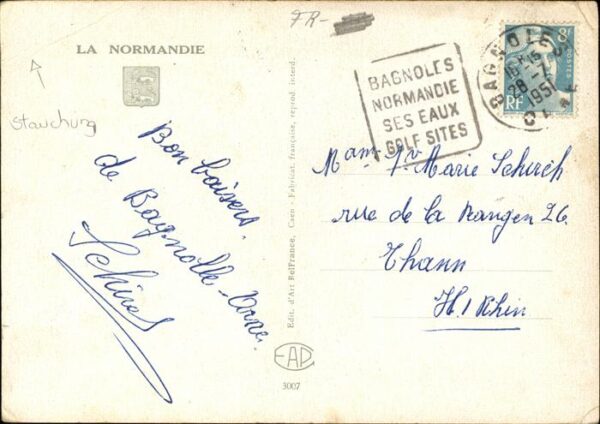 FR-
LA NORMANDIE
Stauchung
Bon baisers
de Bagnolle-Orne.
Edit. d'Art BelFrance, Caen - Fabricat. française, reprod. interd.
EAPC
3007
BAGNOLES
NORMANDIE
SES EAUX
GOLF SITES
BAGNOLES
16 H 15
28 -
1951
ORNE
8F
POSTES
RF
Mam Vve Marie Schirch
rue de la Rangen 26.
Thann
H./Rhin